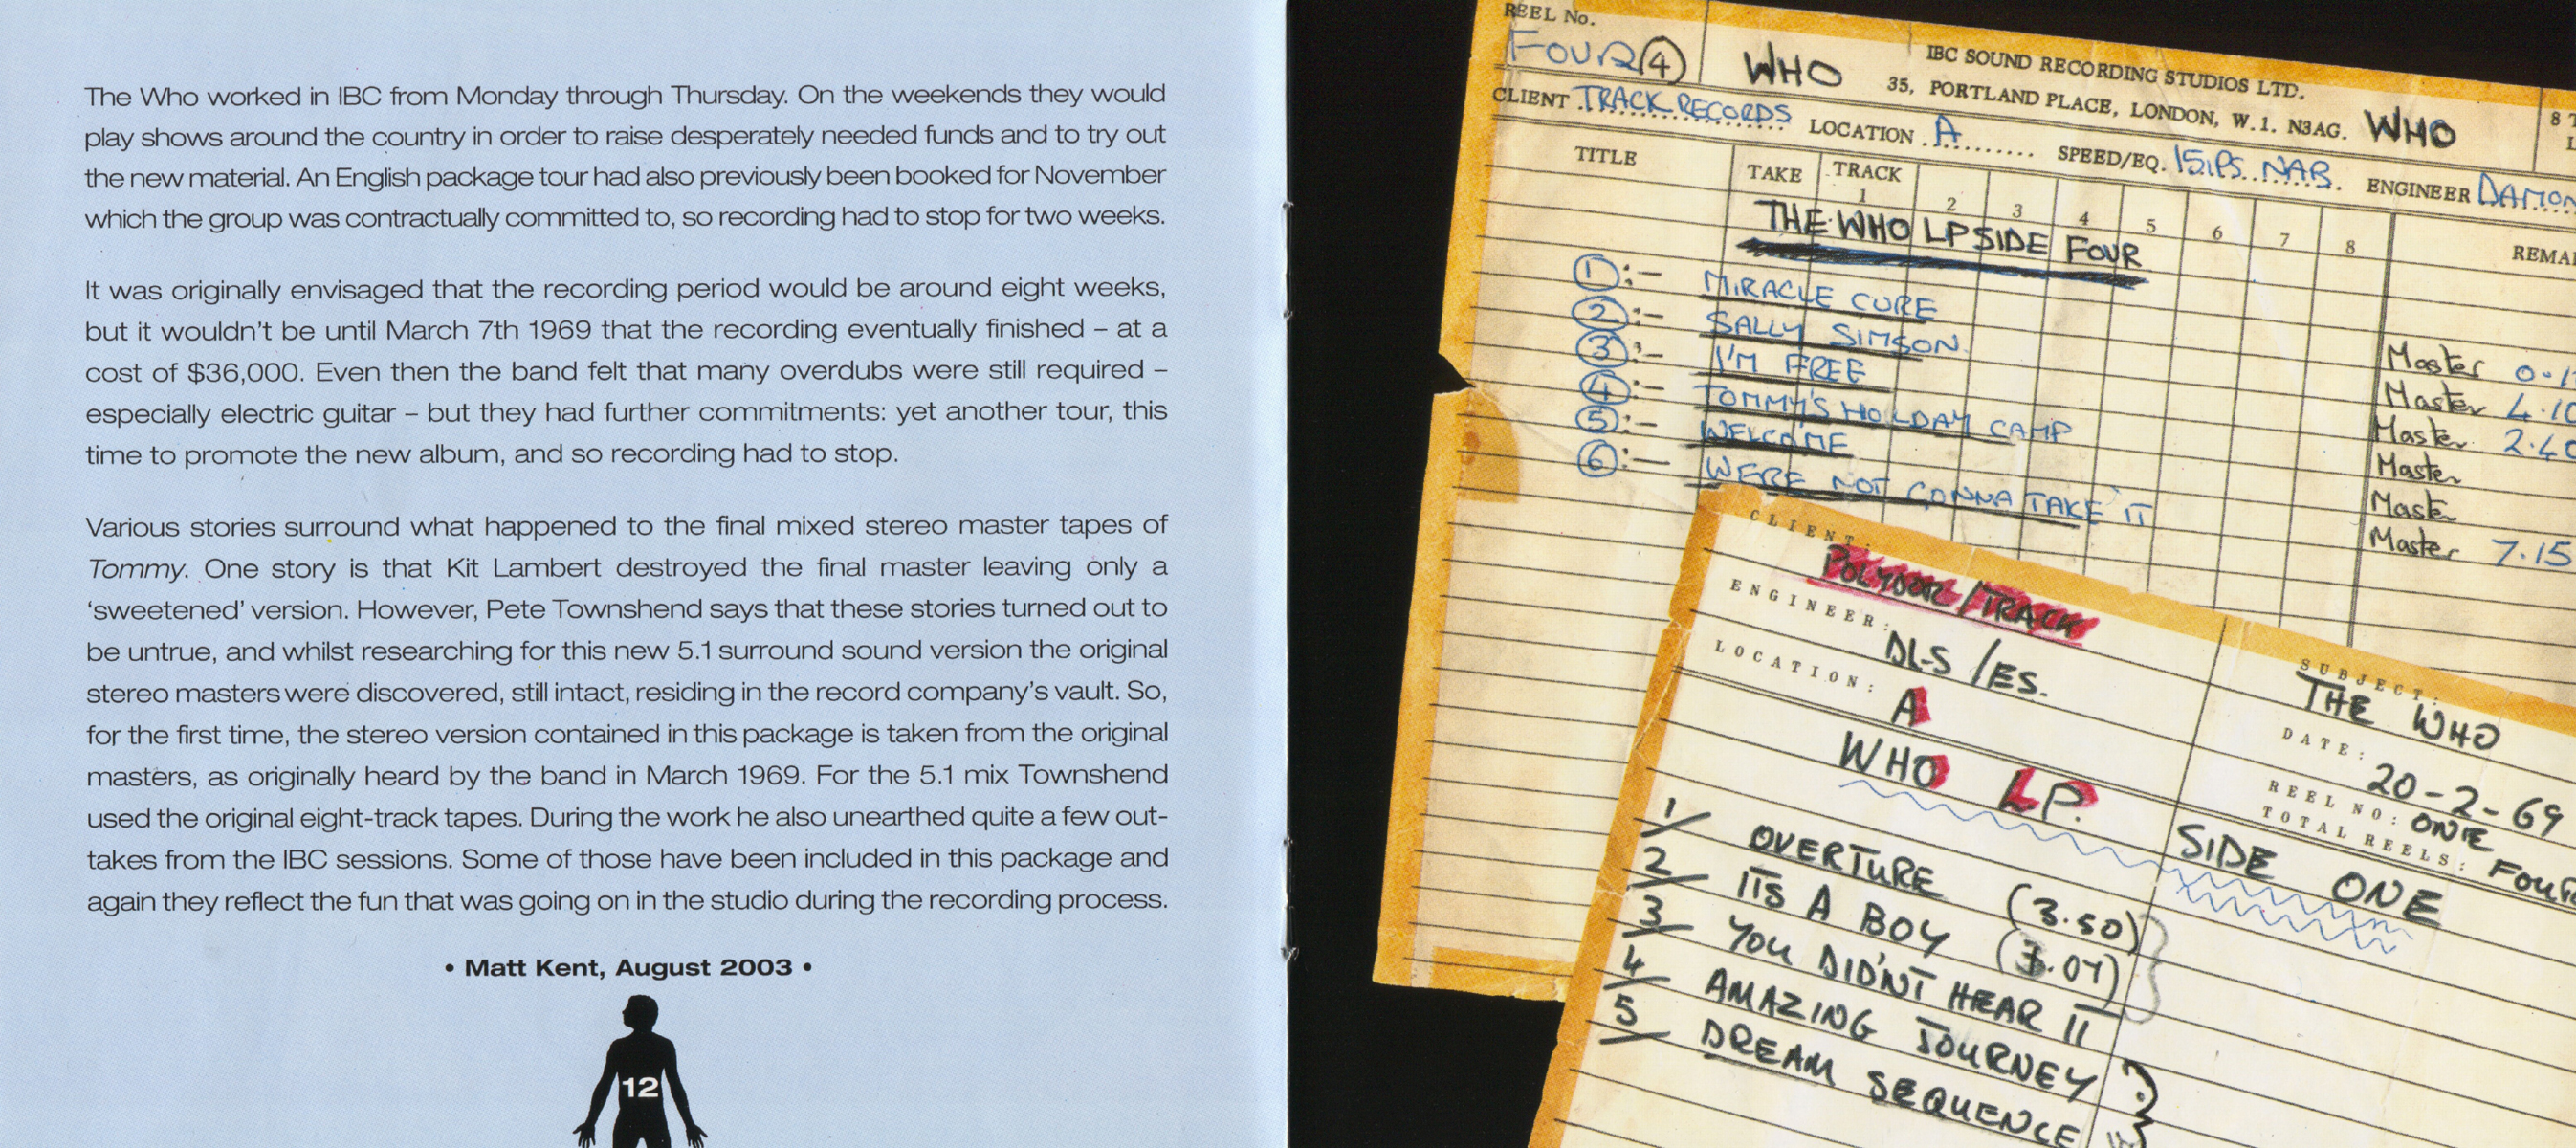 The Who worked in IBC from Monday through Thursday. On the weekends they would
play shows around the country in order to raise desperately needed funds and to try out
the new material. An English package tour had also previously been booked for November
which the group was contractually committed to, so recording had to stop for two weeks.
It was originally envisaged that the recording period would be around eight weeks,
but it wouldn't be until March 7th 1969 that the recording eventually finished – at a
cost of $36,000. Even then the band felt that many overdubs were still required –
especially electric guitar – but they had further commitments: yet another tour, this
time to promote the new album, and so recording had to stop.
Various stories surround what happened to the final mixed stereo master tapes of
Tommy. One story is that Kit Lambert destroyed the final master leaving only a
‘sweetened’ version. However, Pete Townshend says that these stories turned out to
be untrue, and whilst researching for this new 5.1 surround sound version the original
stereo masters were discovered, still intact, residing in the record company's vault. So,
for the first time, the stereo version contained in this package is taken from the original
masters, as originally heard by the band in March 1969. For the 5.1 mix Townshend
used the original eight-track tapes. During the work he also unearthed quite a few out-
takes from the IBC sessions. Some of those have been included in this package and
again they reflect the fun that was going on in the studio during the recording process.
• Matt Kent, August 2003 •
12
REEL No.
FOUR 4 WHO IBC SOUND RECORDING STUDIOS LTD.
35, PORTLAND PLACE, LONDON, W.1. N3AG. WHO 8
CLIENT TRACK RECORDS LOCATION A SPEED/EQ. 15IPS. NAB. ENGINEER DAMON
TITLE TAKE TRACK 1 2 3 4 5 6 7 8
THE WHO LP SIDE FOUR
1:– MIRACLE CURE Master
2:– SALLY SIMSON. Master
3:– I'M FREE Master
4:– TOMMY'S HOLIDAY CAMP Master
5:– WELCOME Master
6:– WERE NOT GONNA TAKE IT Master 7.15
CLIENT: POLYDOR/TRACK
ENGINEER: DLS/ES.
LOCATION: A
SUBJECT: THE WHO
DATE: 20-2-69
REEL NO: ONE
TOTAL REELS: FOUR
WHO LP. SIDE ONE
1/ OVERTURE (3.50)
2/ ITS A BOY (3.07)
3/ YOU DIDN'T HEAR IT
4/ AMAZING JOURNEY
5/ DREAM SEQUENCE